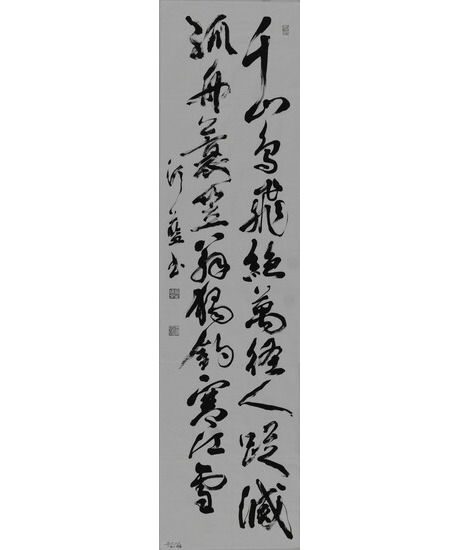 千山鳥飛絶萬径人蹤滅
孤舟蓑笠翁獨釣寒江雪